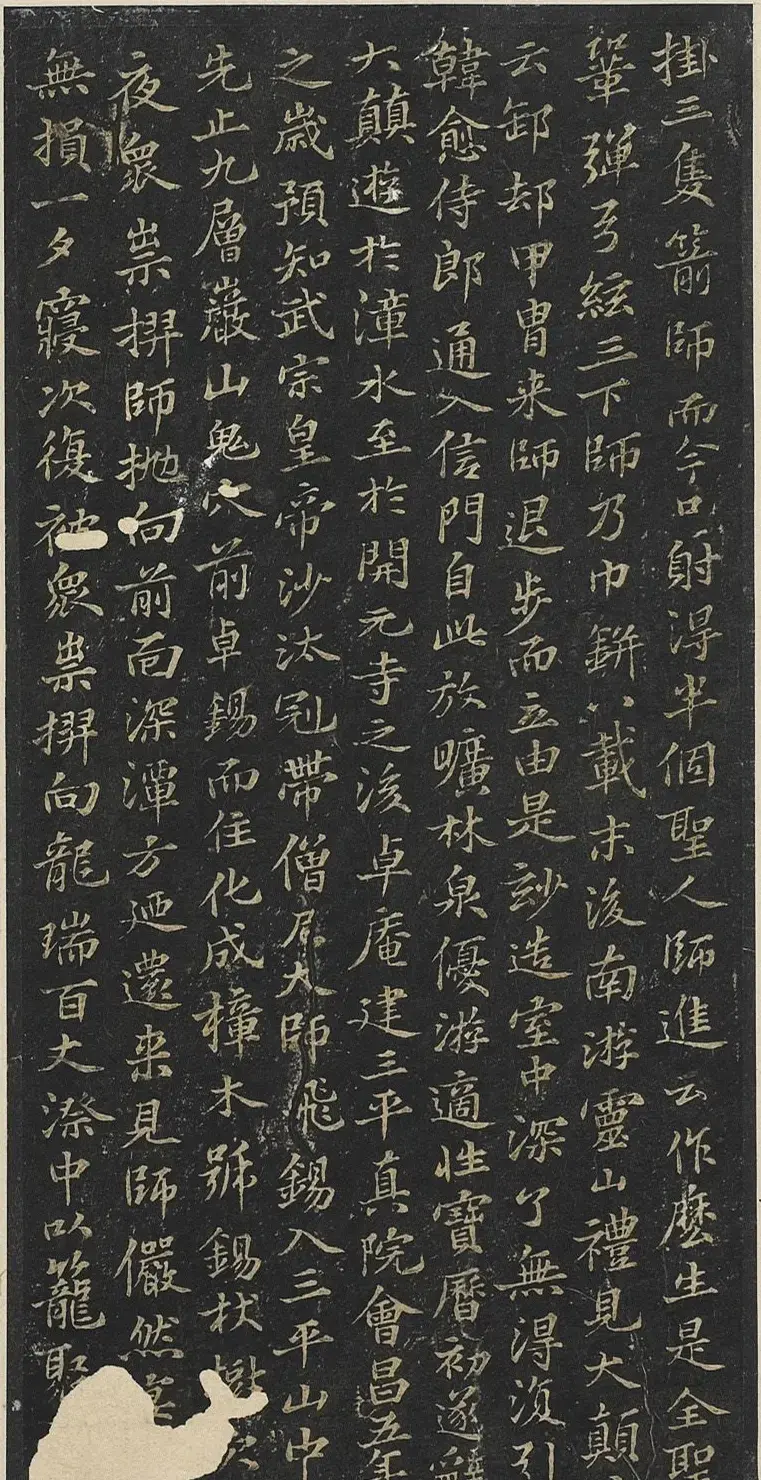 掛三隻箭師而今只射得半個聖人師進云作麼生是全聖
鞏彈弓絃三下師乃巾缾八載末後南游靈山禮見大顛
云卸却甲冑来師退步而立由是玅造室中深了無得復引
韓愈侍郎通入信門自此放曠林泉優游適性寶曆初遂辭
大顛遊於漳水至於開元寺之後卓庵建三平真院會昌五年
之歲預知武宗皇帝沙汰冠帶僧尼大師飛錫入三平山中
先止九層巖山鬼穴前卓錫而住化成樟木號錫杖
夜眾祟師抛向前面深潭方廻還来見師儼然
無損一夕寢次復被眾祟向龍瑞百丈漈中以籠